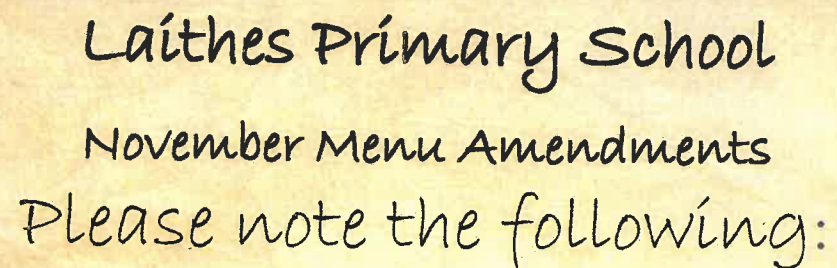 Laithes Primary School
November Menu Amendments
Please note the following: